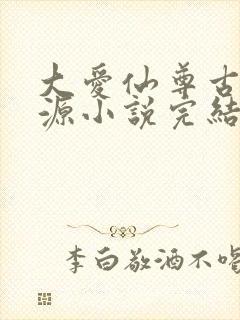 大愛仙尊古
源小説完結
李白敬酒不喝